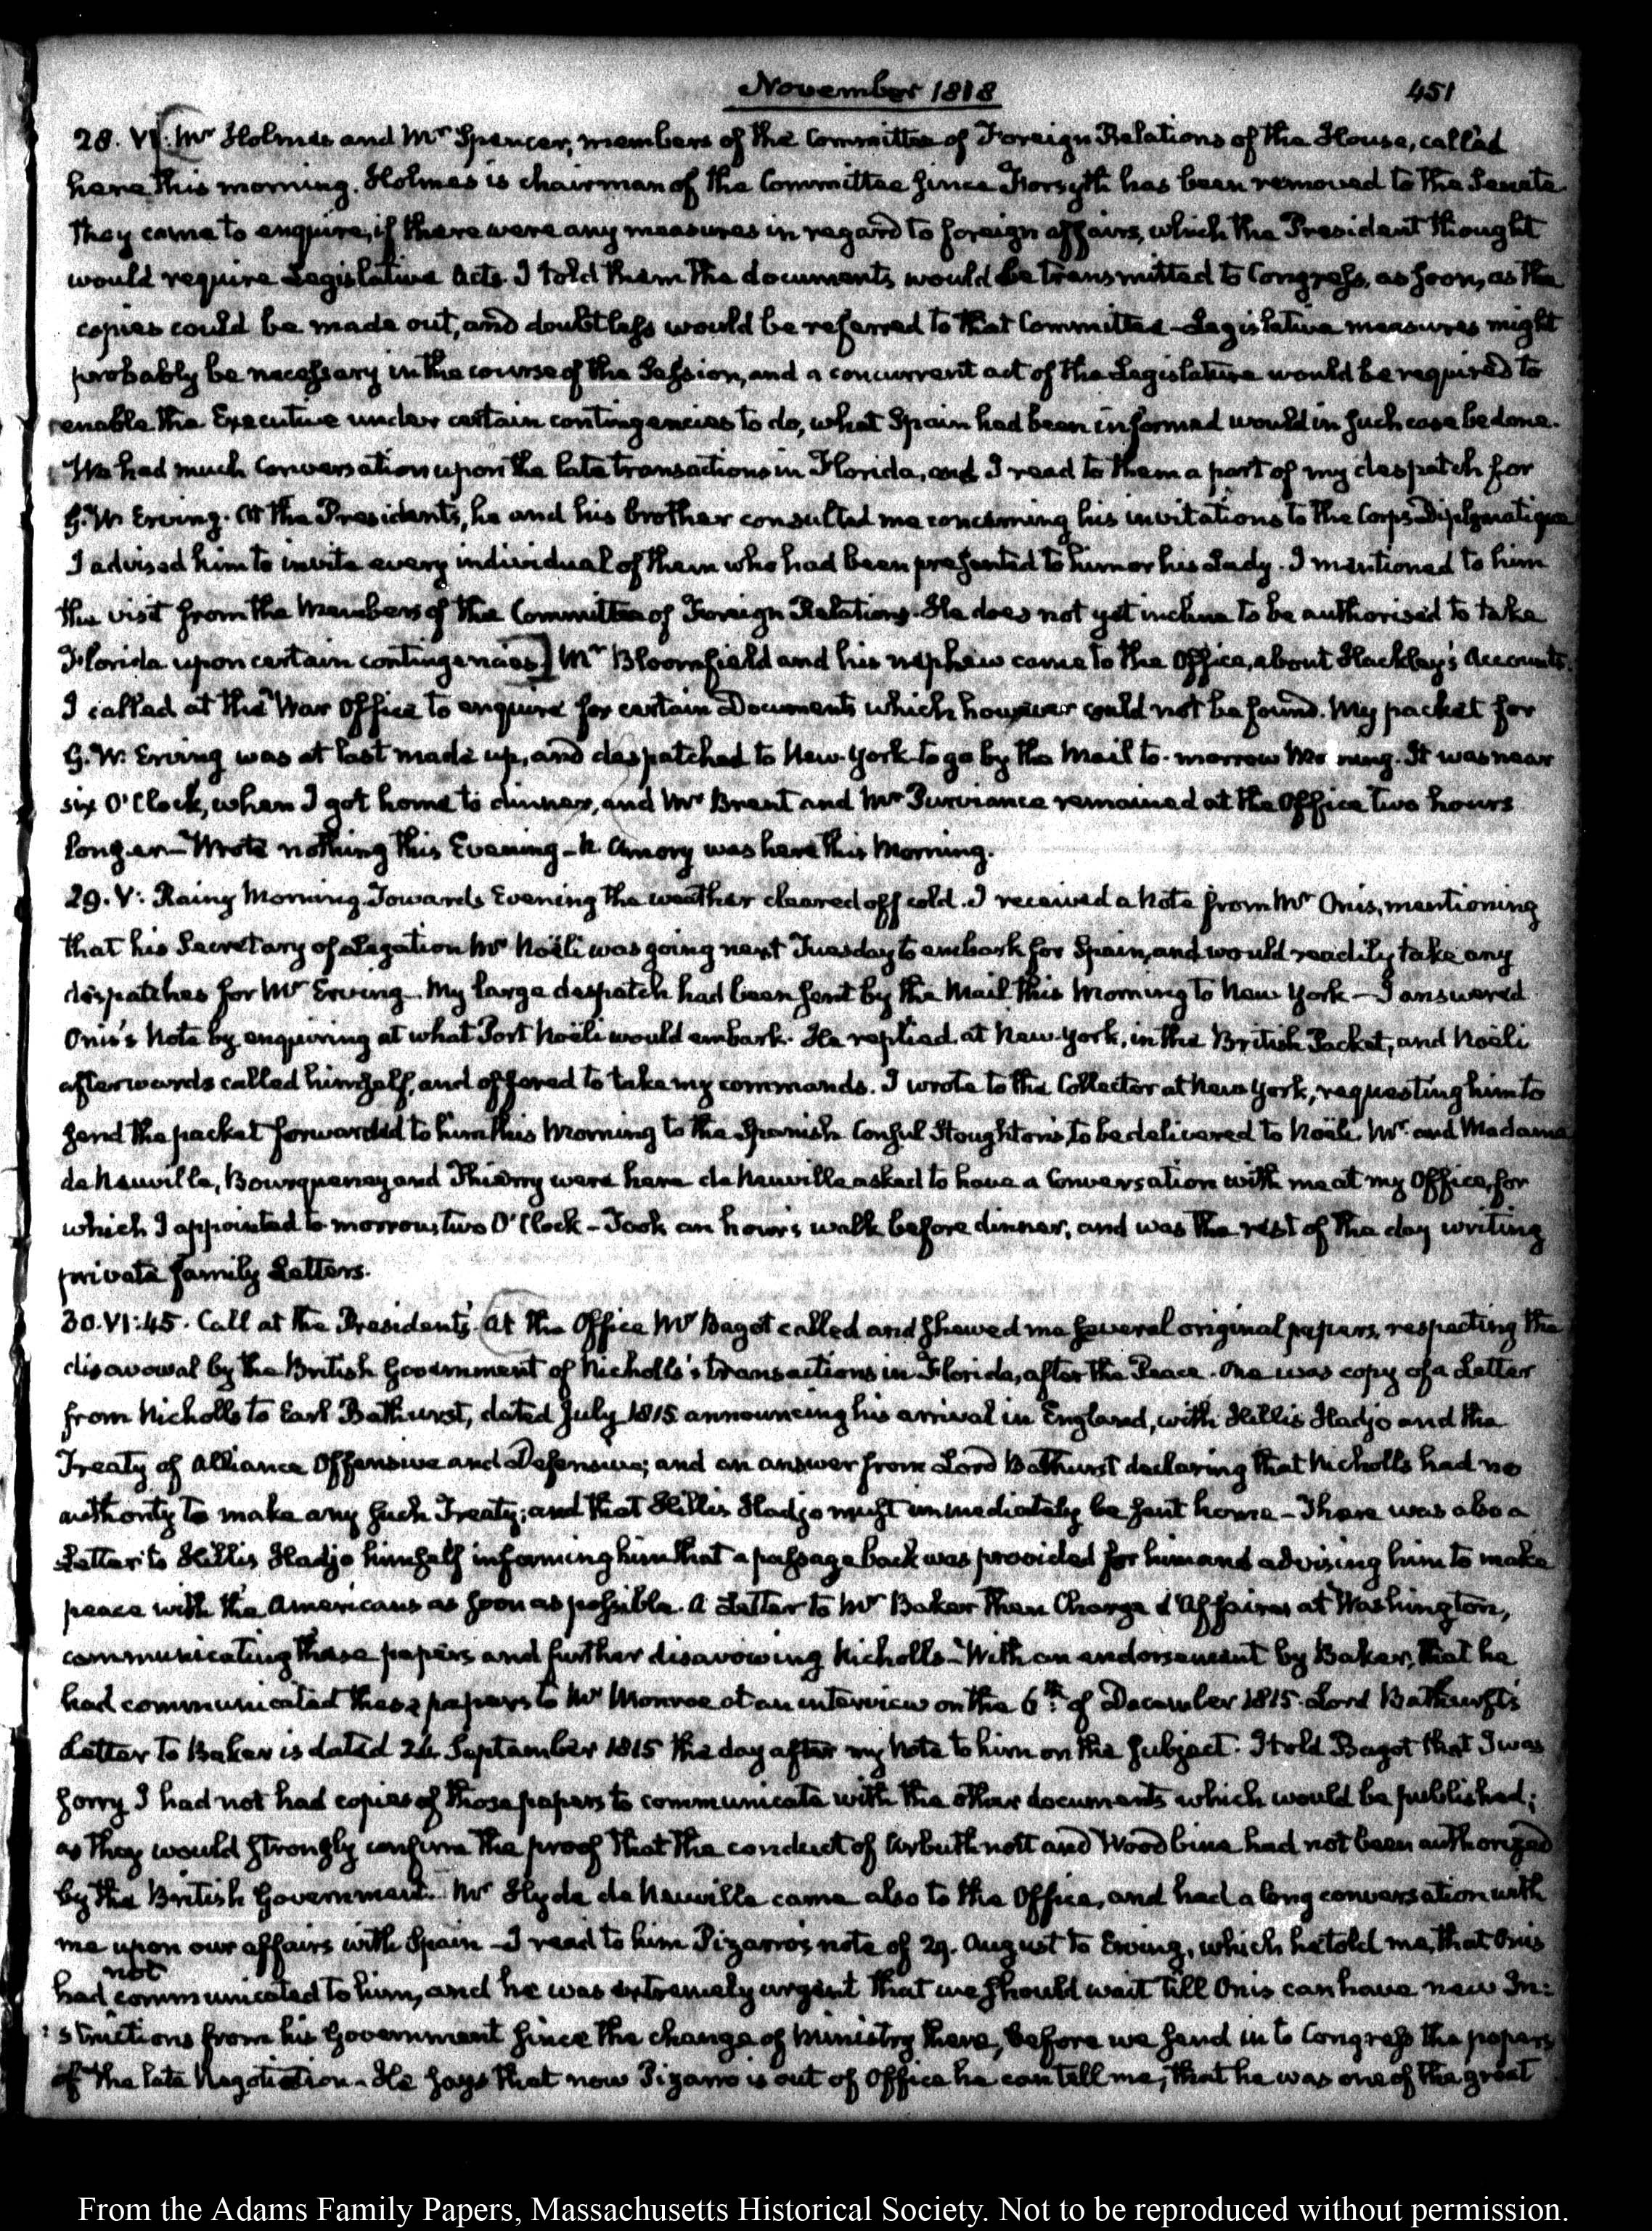 November 1818
451
28. VI: Mr Holmes and Mr Spencer, members of the Committee of Foreign Relations of the House, called
here this morning. Holmes is chairman of the Committee since Forsyth has been removed to the Senate
They came to enquire, if there were any measures in regard to foreign affairs, which the President thought
would require Legislative Acts. I told them the documents would be transmitted to Congress, as soon, as the
copies could be made out, and doubtless would be referred to that Committee - Legislative measures might
probably be necessary in the course of the Session, and a concurrent act of the Legislature would be required to
enable the Executive under certain contingencies to do, what Spain had been informed would in such case be done.
We had much Conversation upon the late transactions in Florida, and I read to them a part of my despatch for
G. W. Erving. At the Presidents, he and his brother consulted me concerning his invitations to the Corps Diplomatique
I advised him to invite every individual of them who had been presented to him or his Lady. I mentioned to him
the visit from the Members of the Committee of Foreign Relations. He does not yet incline to be authorised to take
Florida upon certain contingencies] Mr Bloomfield and his nephew came to the Office, about Hackley's Accounts.
I called at the War Office to enquire for certain Documents which however could not be found. My packet for
G. W. Erving was at last made up, and despatched to New-York to go by the Mail to-morrow Morning. It was near
six O'Clock, when I got home to dinner, and Mr Brent and Mr Purviance remained at the Office two hours
longer - Wrote nothing this Evening - N. Amory was here this Morning.
29. V: Rainy Morning. Towards Evening the weather cleared off cold. I received a Note from Mr Onis, mentioning
that his Secretary of Legation Mr Noëli was going next Tuesday to embark for Spain, and would readily take any
despatches for Mr Erving. My large despatch had been sent by the Mail this Morning to New York - I answered
Onis's Note by enquiring at what Port Noëli would embark. He replied, at New-York, in the British Packet, and Noëli
afterwards called himself, and offered to take my commands. I wrote to the Collector at New York, requesting him to
send the packet forwarded to him this Morning to the Spanish Consul Stoughton's, to be delivered to Noëli. Mr and Madame
de Neuville, Bourqueney and Thierry were here de Neuville asked to have a Conversation with me at my Office, for
which I appointed to morrow, two O'Clock - Took an hour's walk before dinner, and was the rest of the day writing
private family Letters.
30. VI:45. Call at the President's. At the Office Mr Bagot called and shewed me several original papers, respecting the
disavowal by the British Government of Nicholls's transactions in Florida, after the Peace. One was copy of a Letter
from Nicholls to Earl Bathurst, dated July 1815 announcing his arrival in England, with Hillis Hadjo and the
Treaty of Alliance Offensive and Defensive; and an answer from Lord Bathurst declaring that Nicholls had no
authority to make any such Treaty; and that Hillis Hadjo must immediately be sent home - There was also a
Letter to Hillis Hadjo himself informing him that a passage back was provided for him and advising him to make
peace with the Americans as soon as possible. A Letter to Mr Baker then Charge d'Affaires at Washington,
communicating these papers and further disavowing Nicholls - With an endorsement by Baker, that he
had communicated these papers to Mr Monroe at an interview on the 6th of December 1815. Lord Bathurst's
Letter to Baker is dated 26. September 1815 the day after my Note to him on the subject. I told Bagot that I was
sorry I had not had copies of those papers to communicate with the other documents which would be published;
as they would strongly confirm the proof that the conduct of Arbuthnott and Woodbine had not been authorized
by the British Government. Mr Hyde de Neuville came also to the Office, and had a long conversation with
me upon our affairs with Spain - I read to him Pizarro's note of 29. August to Erving, which he told me, that Onis
had not communicated to him, and he was extremely urgent that we should wait till Onis can have new In:
:structions from his Government since the change of Ministry there, before we send in to Congress the papers
of the late Negotiation - He says that now Pizarro is out of Office he can tell me, that he was one of the great
From the Adams Family Papers, Massachusetts Historical Society. Not to be reproduced without permission.